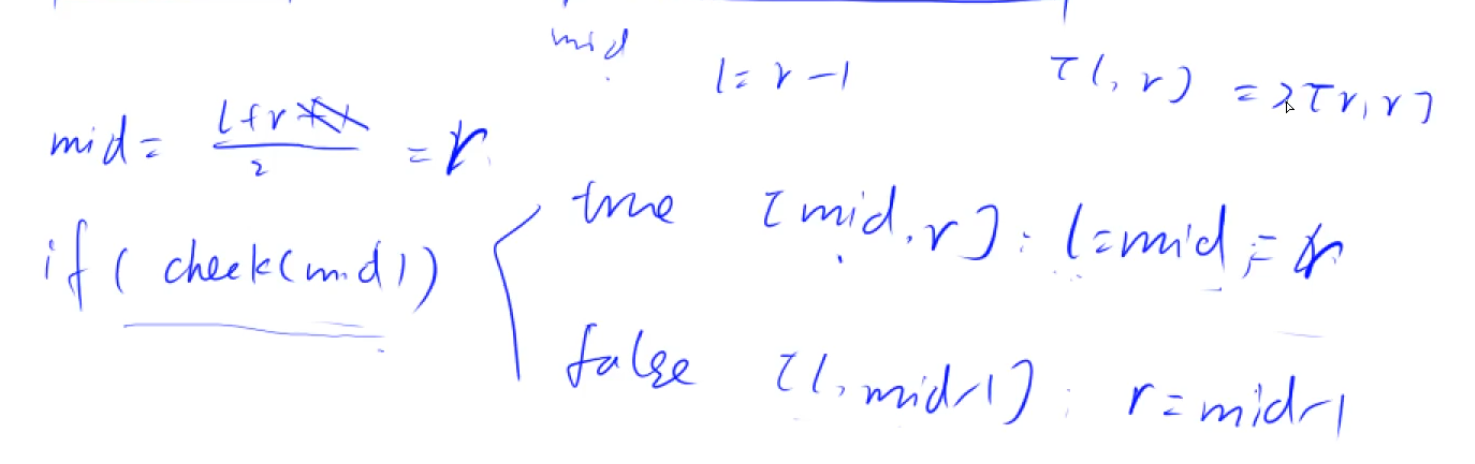 mid
l = r - 1
[l, r] => [r, r]
mid = l + r / 2 = r
if ( check(mid))
true [mid, r] : l = mid = r
false [l, mid-1] : r = mid-1